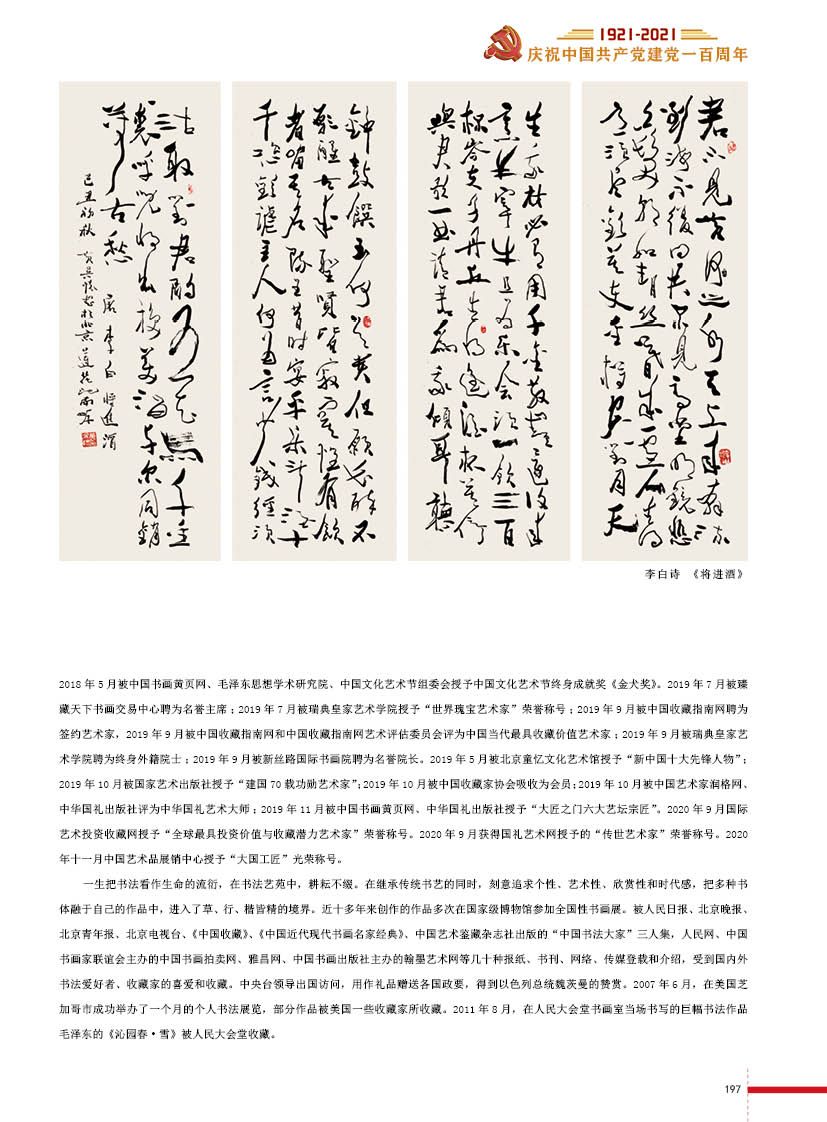 1921-2021
庆祝中国共产党建党一百周年
君不见黄河之水天上来奔流
到海不復回君不见高堂明鏡悲
白髮朝如青丝暮成雪人生得
意须尽歡莫使金樽空對月天
生我材必有用千金散盡還復来
烹羊宰牛且為乐會须一飲三百
杯岑夫子丹丘生将進酒杯莫停
與君歌一曲请君為我倾耳聽
鐘鼓饌玉何足貴但願长醉不
願醒古来聖賢皆寂寞惟有飲
者留其名陈王昔时宴平乐斗酒十
千恣歡謔主人何為言少錢径须
沽取對君酌五花馬千金
裘呼兒将出换美酒与尔同銷
万古愁 唐李白将進酒
己丑初秋
李白诗 《将进酒》
2018 年 5 月被中国书画黄页网、毛泽东思想学术研究院、中国文化艺术节组委会授予中国文化艺术节终身成就奖《金犬奖》。2019 年 7 月被臻
藏天下书画交易中心聘为名誉主席；2019 年 7 月被瑞典皇家艺术学院授予“世界瑰宝艺术家”荣誉称号；2019 年 9 月被中国收藏指南网聘为
签约艺术家，2019 年 9 月被中国收藏指南网和中国收藏指南网艺术评估委员会评为中国当代最具收藏价值艺术家；2019 年 9 月被瑞典皇家艺
术学院聘为终身外籍院士；2019 年 9 月被新丝路国际书画院聘为名誉院长。2019 年 5 月被北京童忆文化艺术馆授予“新中国十大先锋人物”；
2019 年 10 月被国家艺术出版社授予“建国 70 载功勋艺术家”；2019 年 10 月被中国收藏家协会吸收为会员；2019 年 10 月被中国艺术家润格网、
中华国礼出版社评为中华国礼艺术大师；2019 年 11 月被中国书画黄页网、中华国礼出版社授予“大匠之门六大艺坛宗匠”。2020 年 9 月国际
艺术投资收藏网授予“全球最具投资价值与收藏潜力艺术家”荣誉称号。2020 年 9 月获得国礼艺术网授予的“传世艺术家”荣誉称号。2020
年十一月中国艺术品展销中心授予“大国工匠”光荣称号。
一生把书法看作生命的流衍，在书法艺苑中，耕耘不缀。在继承传统书艺的同时，刻意追求个性、艺术性、欣赏性和时代感，把多种书
体融于自己的作品中，进入了草、行、楷皆精的境界。近十多年来创作的作品多次在国家级博物馆参加全国性书画展。被人民日报、北京晚报、
北京青年报、北京电视台、《中国收藏》、《中国近代现代书画名家经典》、中国艺术鉴藏杂志社出版的“中国书法大家”三人集，人民网、中国
书画家联谊会主办的中国书画拍卖网、雅昌网、中国书画出版社主办的翰墨艺术网等几十种报纸、书刊、网络、传媒登载和介绍，受到国内外
书法爱好者、收藏家的喜爱和收藏。中央台领导出国访问，用作礼品赠送各国政要，得到以色列总统魏茨曼的赞赏。2007 年 6 月，在美国芝
加哥市成功举办了一个月的个人书法展览，部分作品被美国一些收藏家所收藏。2011 年 8 月，在人民大会堂书画室当场书写的巨幅书法作品
毛泽东的《沁园春·雪》被人民大会堂收藏。
197